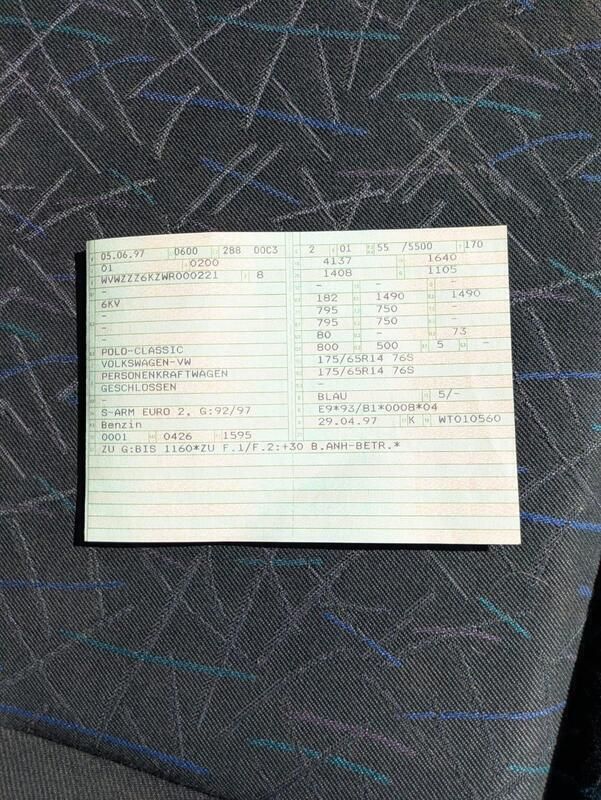 05.06.97 0600 288 00C3
01 0200
WVWZZZ6KZWR000221 8
-
6KV
-
-
-
POLO-CLASSIC
VOLKSWAGEN-VW
PERSONENKRAFTWAGEN
GESCHLOSSEN
-
S-ARM EURO 2, G:92/97
Benzin
0001 0426 1595
ZU G:BIS 1160*ZU F.1/F.2:+30 B.ANH-BETR.*
2 01 55 /5500 170
4137 1640
1408 1105
- - -
182 1490 1490
795 750 -
795 750 -
80 - 73
800 500 5 -
175/65R14 76S
175/65R14 76S
-
BLAU 5/-
E9*93/81*0008*04
29.04.97 K WT010560